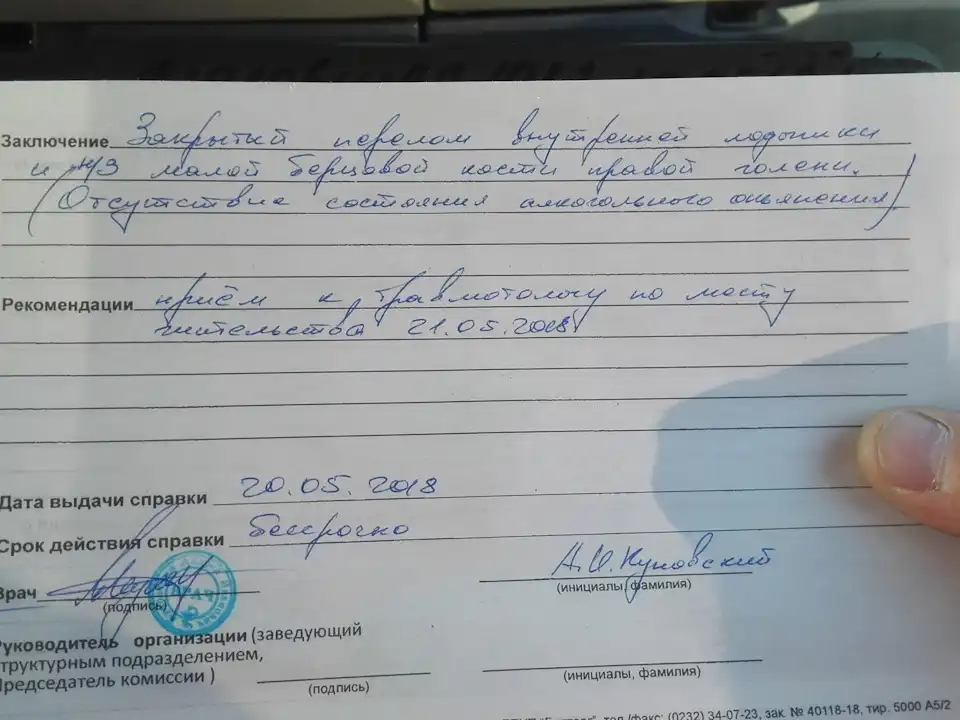 Заключение Закрытый перелом внутренней лодыжки
и н/3 малой берцовой кости правой голени.
(Отсутствие состояния алкогольного опьянения)
Рекомендации приём к травмотологу по месту
жительства 21.05.2018
Дата выдачи справки 20.05.2018
Срок действия справки бессрочно
Врач
(подпись)
(инициалы, фамилия)
Руководитель организации (заведующий
структурным подразделением,
Председатель комиссии )
(подпись)
(инициалы, фамилия)
тел./факс: (0232) 34-07-23, зак. № 40118-18, тир. 5000 А5/2